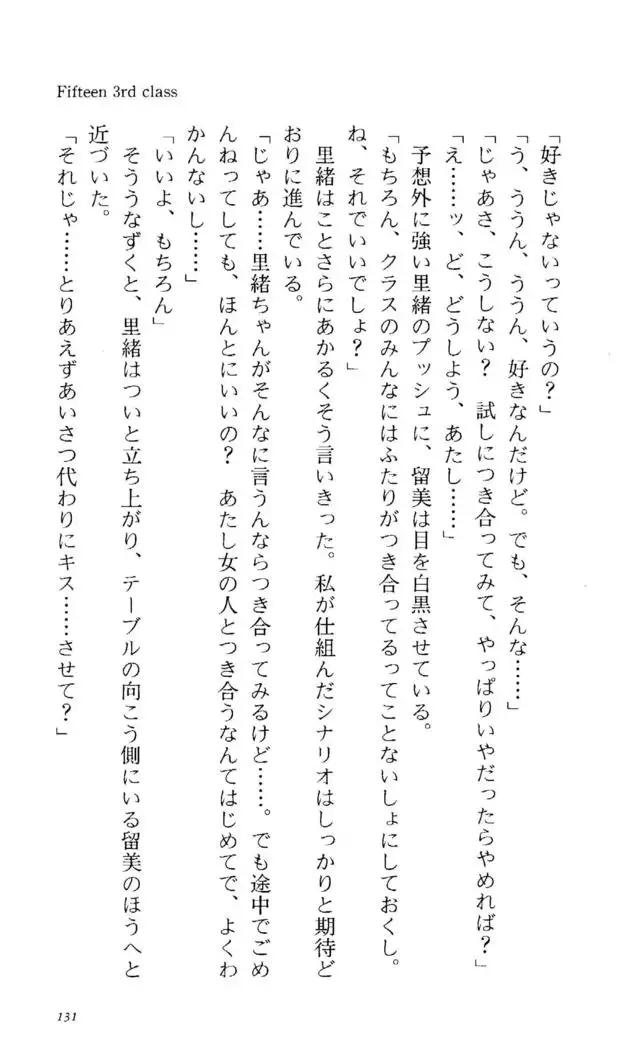 Fifteen 3rd class
「好きじゃないっていうの？」
「う、ううん、ううん、好きなんだけど。でも、そんな……」
「じゃあさ、こうしない？　試しにつき合ってみて、やっぱりいやだったらやめれば？」
「え……ッ、ど、どうしよう、あたし……」
　予想外に強い里緒のプッシュに、留美は目を白黒させている。
「もちろん、クラスのみんなにはふたりがつき合ってるってことないしょにしておくし。
ね、それでいいでしょ？」
　里緒はことさらにあかるくそう言いきった。私が仕組んだシナリオはしっかりと期待ど
おりに進んでいる。
「じゃあ……里緒ちゃんがそんなに言うんならつき合ってみるけど……。でも途中でごめ
んねってしても、ほんとにいいの？　あたし女の人とつき合うなんてはじめてで、よくわ
かんないし……」
「いいよ、もちろん」
　そううなずくと、里緒はついと立ち上がり、テーブルの向こう側にいる留美のほうへと
近づいた。
「それじゃ……とりあえずあいさつ代わりにキス……させて？」
131